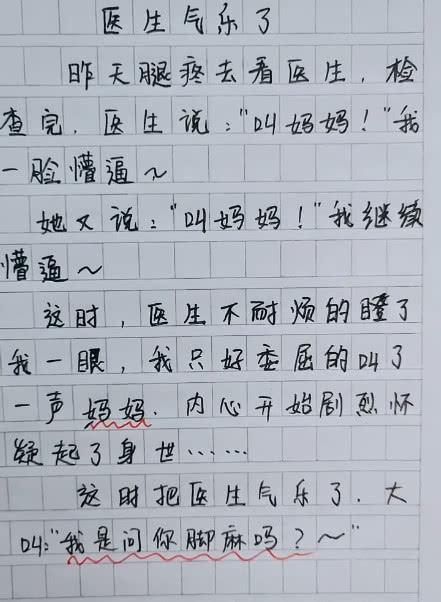 医生气乐了
昨天腿疼去看医生，检
查完，医生说："叫妈妈！"我
一脸懵逼～
她又说："叫妈妈！"我继续
懵逼～
这时，医生不耐烦的瞪了
我一眼，我只好委屈的叫了
一声妈妈．内心开始剧烈怀
疑起了身世……
这时把医生气乐了．大
叫："我是问你脚麻吗？～"